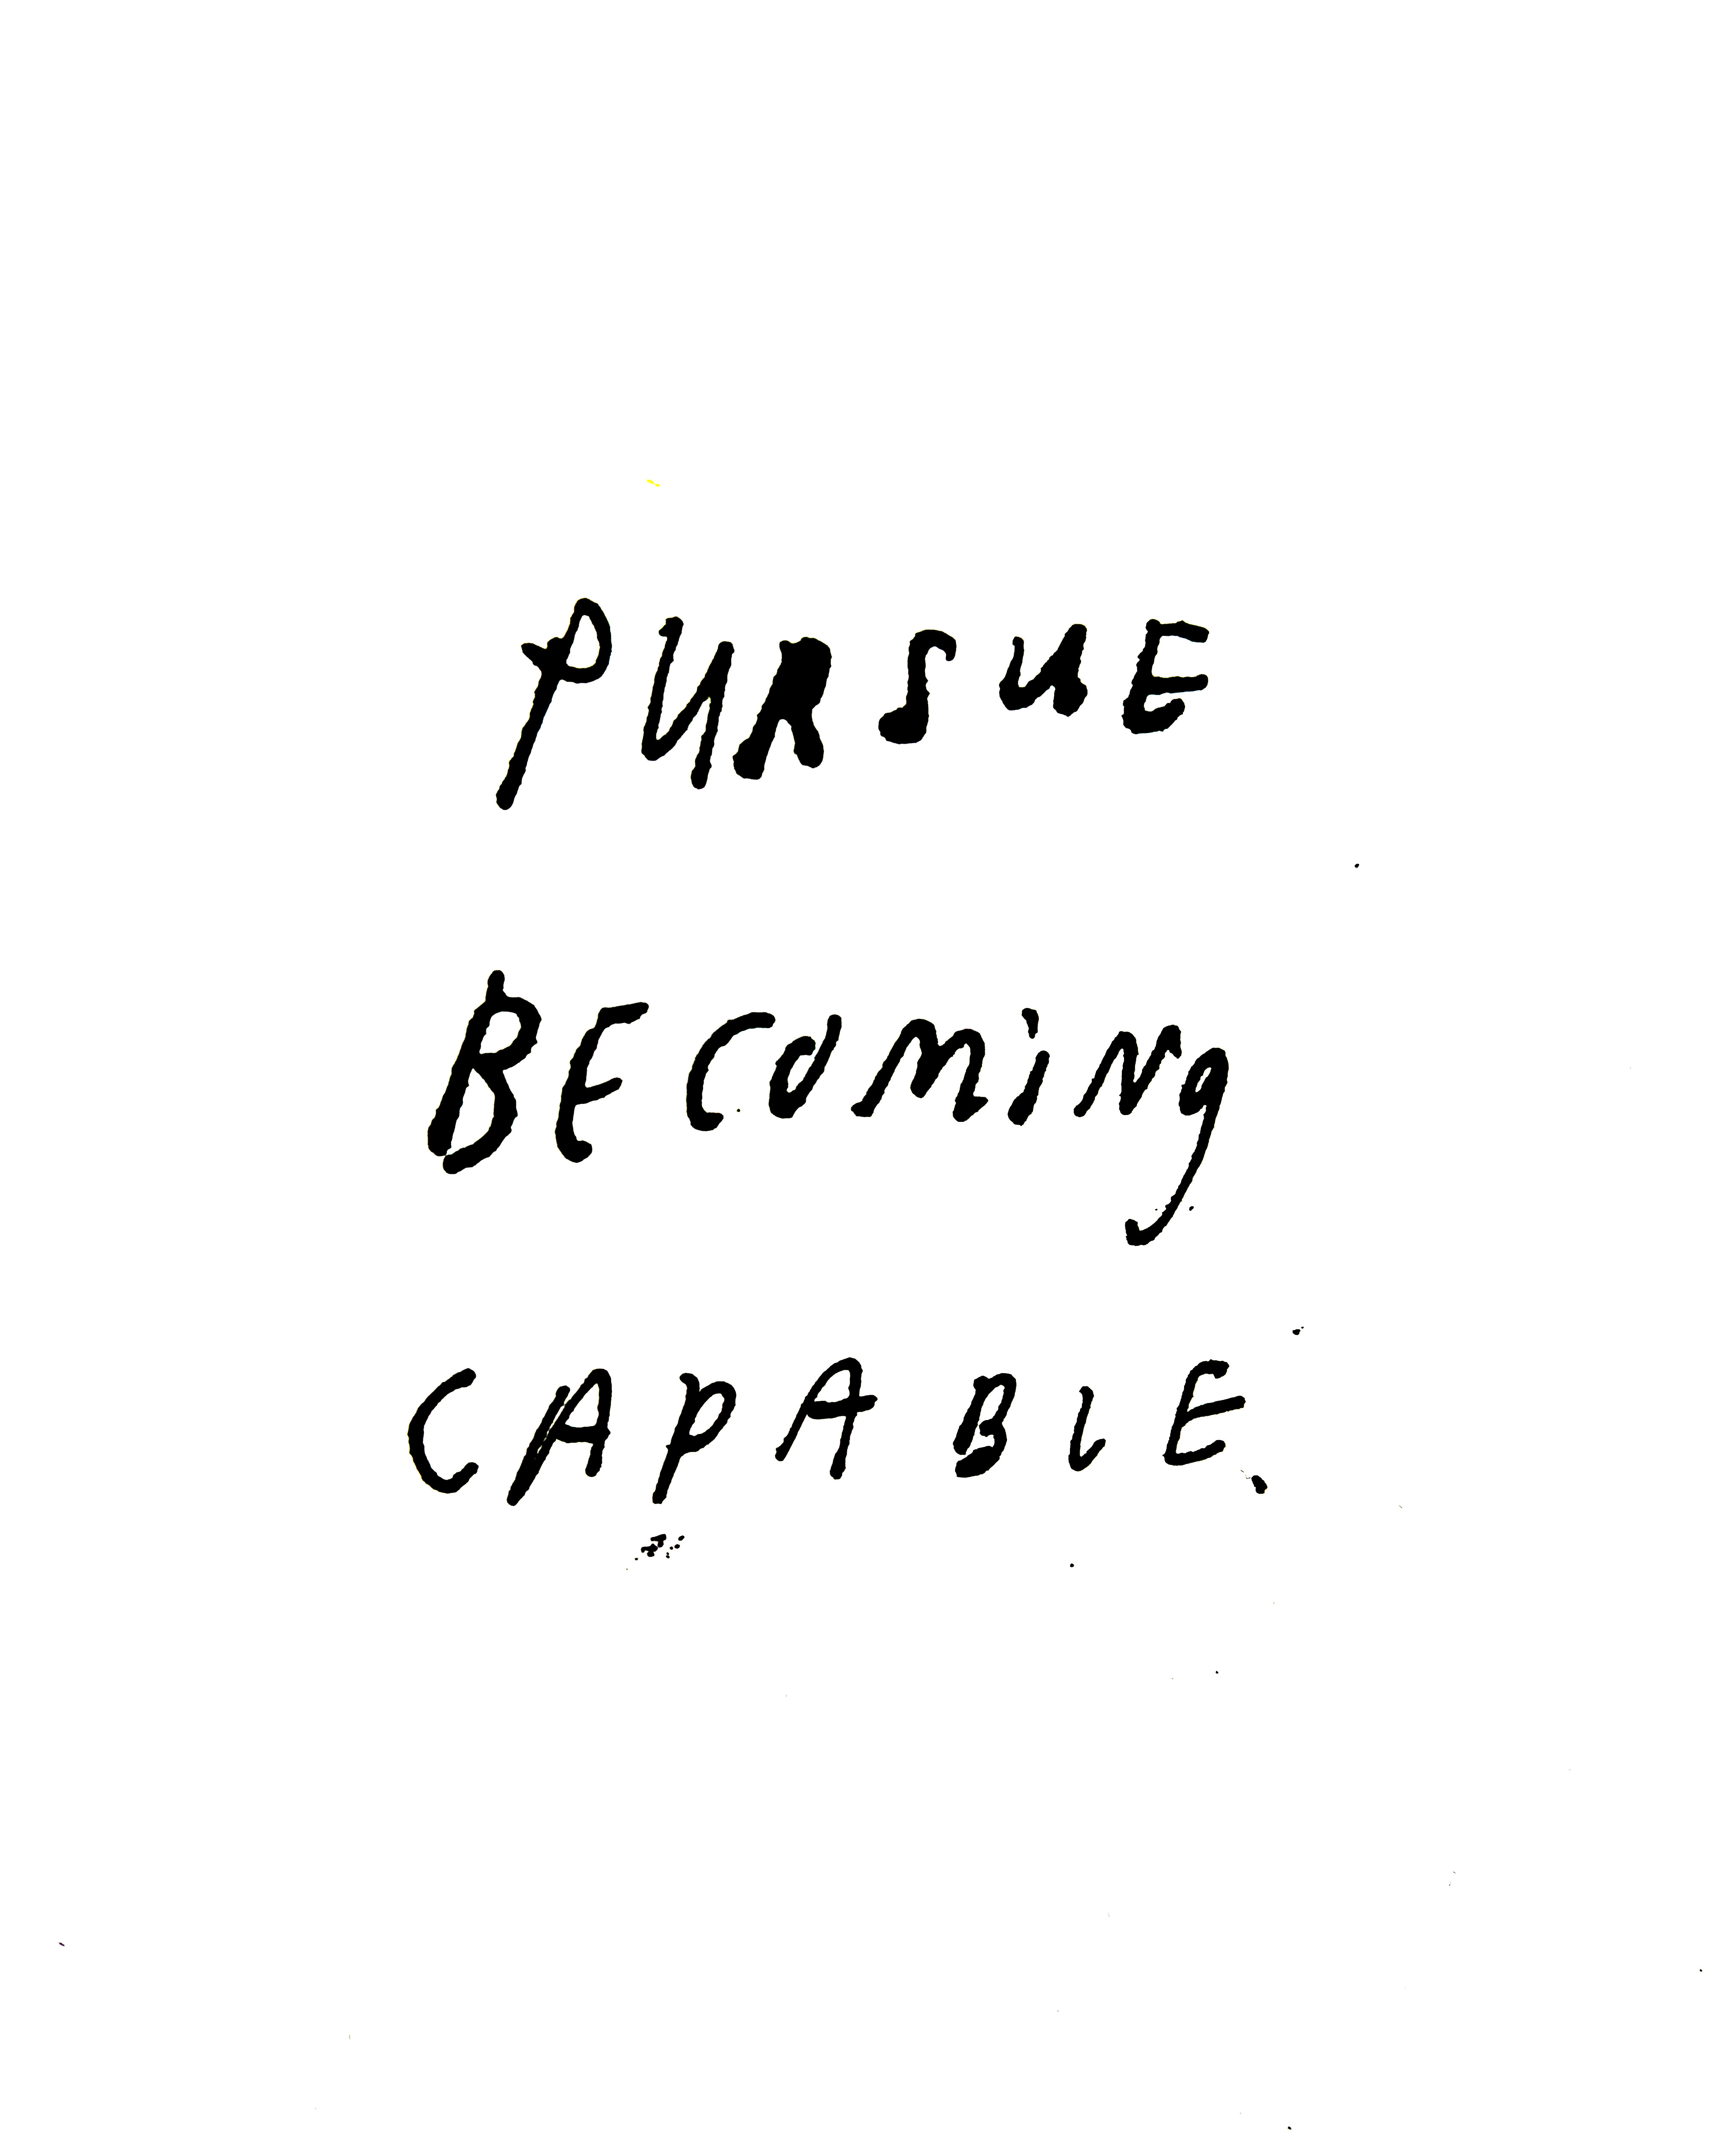 PURsuE
BEcoming
CAPABlE.